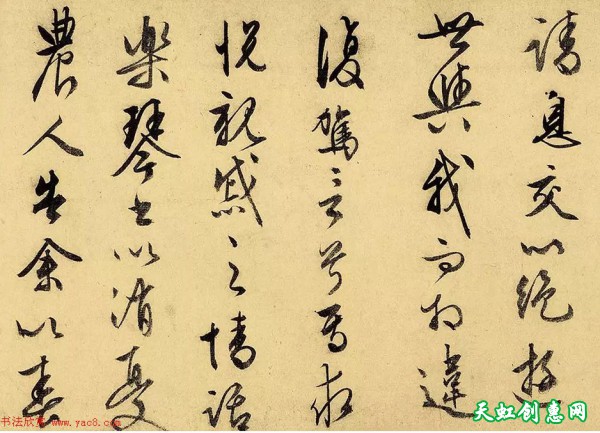 請息交以絕遊
世與我而相違
復駕言兮焉求
悅親戚之情話
樂琴書以消憂
農人告余以春
书法欣赏 www.yac8.com
天虹创意网